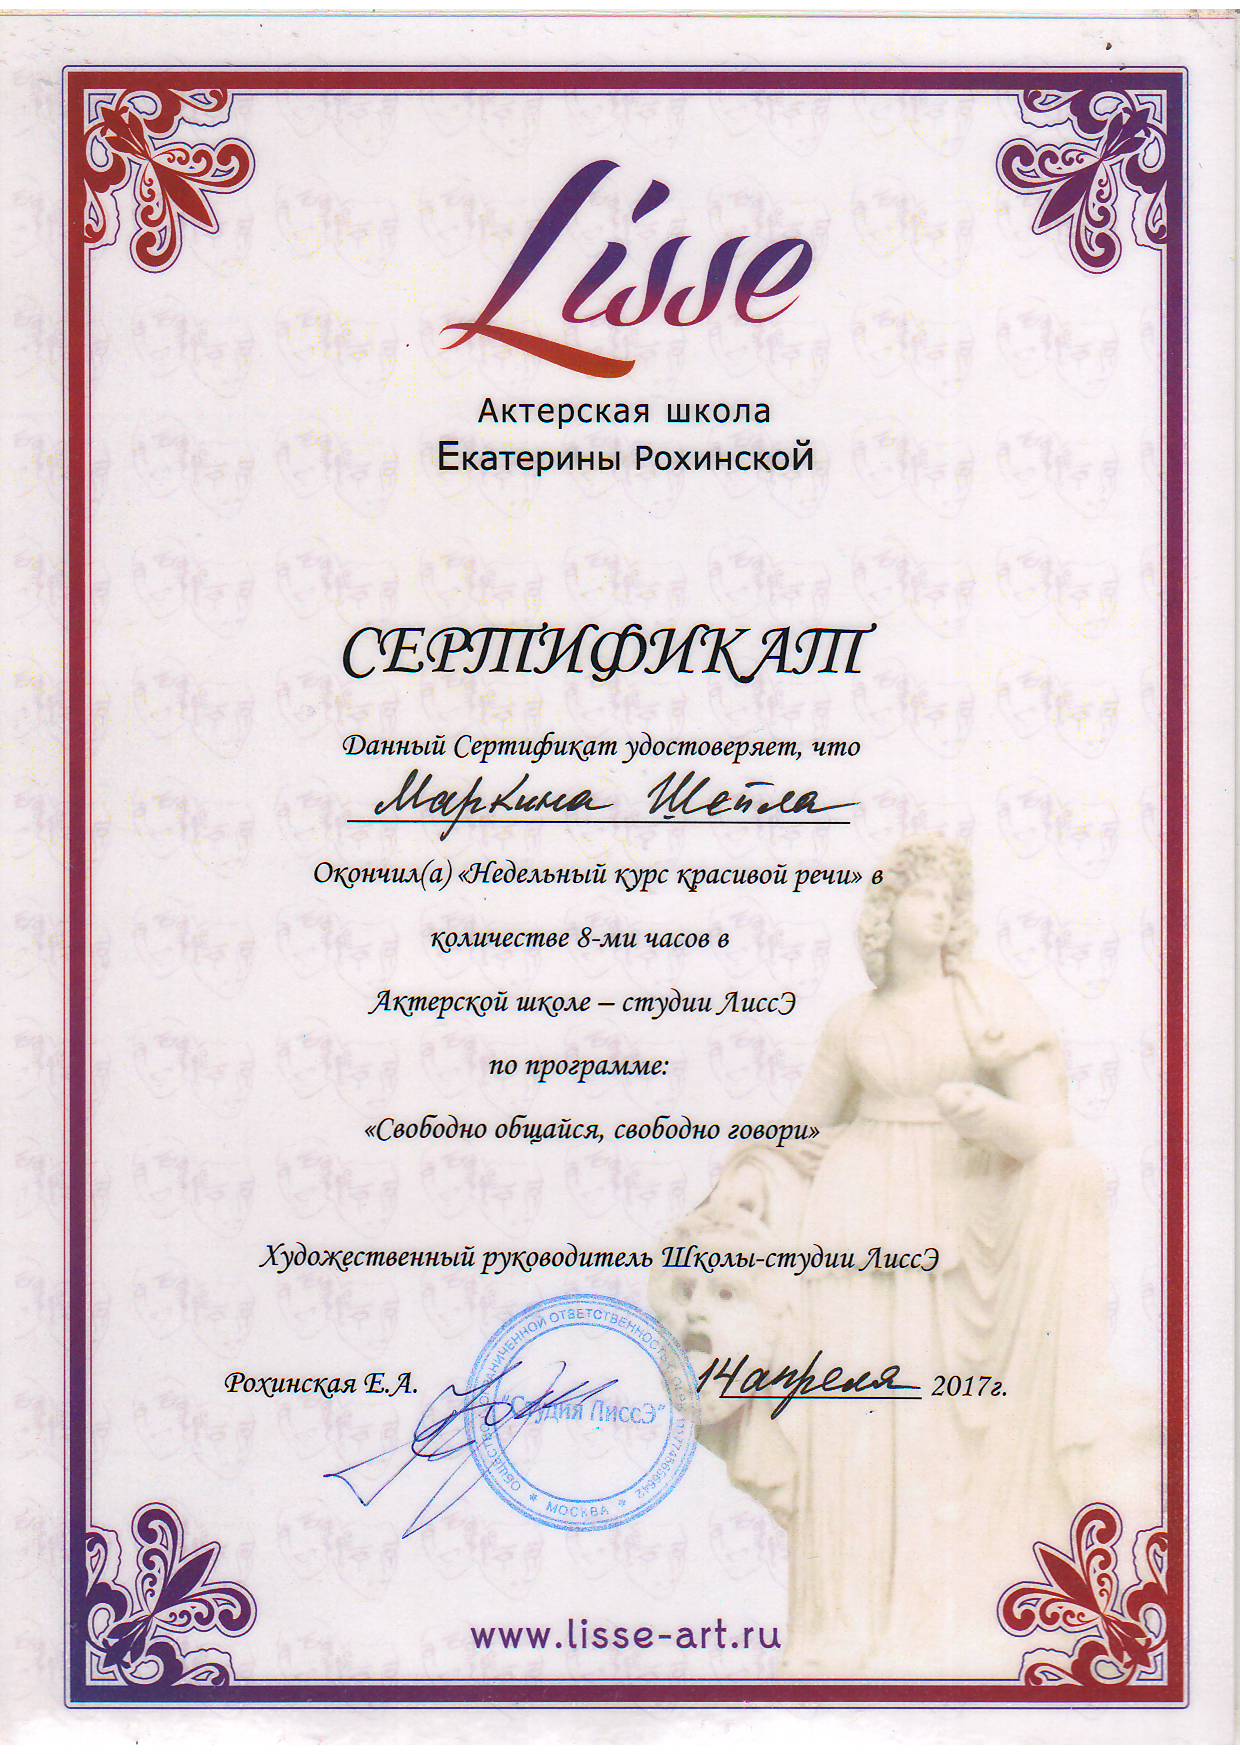 Lisse
Актерская школа
Екатерины Рохинской
СЕРТИФИКАТ
Данный Сертификат удостоверяет, что
Маркина Шейла
Окончил(а) «Недельный курс красивой речи» в
количестве 8-ми часов в
Актерской школе – студии ЛиссЭ
по программе:
«Свободно общайся, свободно говори»
Художественный руководитель Школы-студии ЛиссЭ
Рохинская Е.А.
"Студия ЛиссЭ"
МОСКВА
14 апреля 2017г.
www.lisse-art.ru